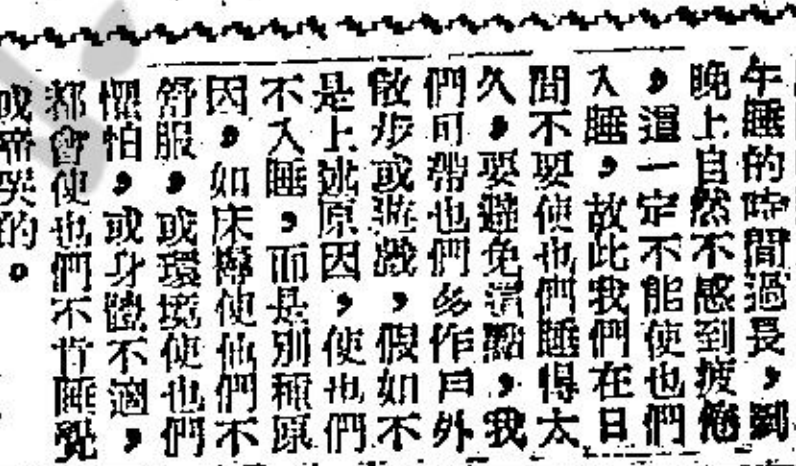 午睡的時間過長，到
晚上自然不感到疲倦
，這一定不能使他們
入睡，故此我們在日
間不要使他們睡得太
久，要避免這點，我
們可帶他們多作戶外
散步或遊戲，假如不
是上述原因，使他們
不入睡，而是別種原
因，如床褥使他們不
舒服，或環境使他們
懼怕，或身體不適，
都會使他們不肯睡覺
或啼哭的。